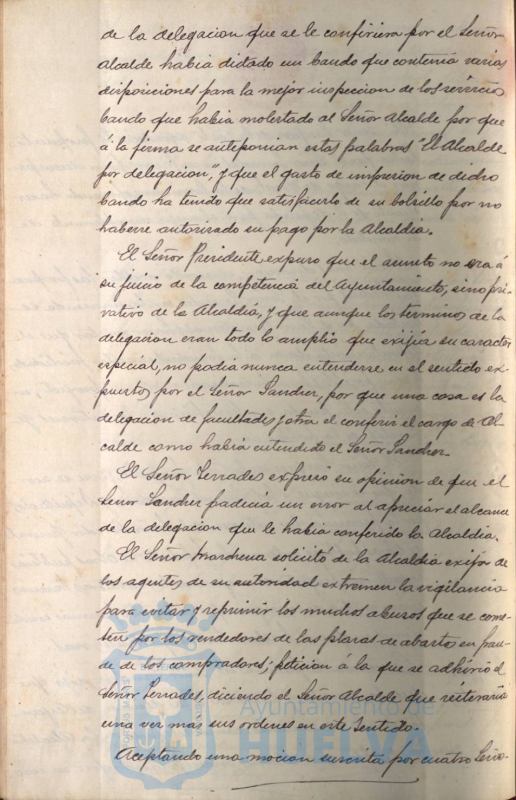 de la delegacion que se le confiriera por el Señor
Alcalde habia dictado un bando que contenia varias
disposiciones para la mejor inspeccion de los servicios
bando que habia molestado al Señor Alcalde por que
á la firma se anteponian estas palabras "El Alcalde
por delegacion", y que el gasto de impresion de dicho
bando ha tenido que satisfacerlo de su bolsillo por no
haberse autorizado su pago por la Alcaldia.
El Señor Presidente expuso que el asunto no era á
su juicio de la competencia del Ayuntamiento, sino pri-
vativo de la Alcaldía, y que aunque los terminos de la
delegacion eran todo lo amplio que exijia su caracter
especial, no podia nunca entenderse en el sentido ex-
puesto por el Señor Sanchez, por que una cosa es la
delegacion de facultades y otra el conferir el cargo de Al-
calde como habia entendido el Señor Sanchez.
El Señor Terrades expresó su opinion de que el
Señor Sanchez padecia un error al apreciar el alcance
de la delegacion que le habia conferido la Alcaldia.
El Señor Marchena solicitó de la Alcaldia exija de
los agentes de su autoridad extremen la vigilancia
para evitar y reprimir los muchos abusos que se come-
ten por los vendedores de las plazas de abastos en frau-
de de los compradores; peticion á la que se adhirió el
Señor Terrades, diciendo el Señor Alcalde que reiteraria
una vez más sus ordenes en este sentido.
Aceptando una mocion suscrita por cuatro Seño-
Ayuntamiento de
HUELVA